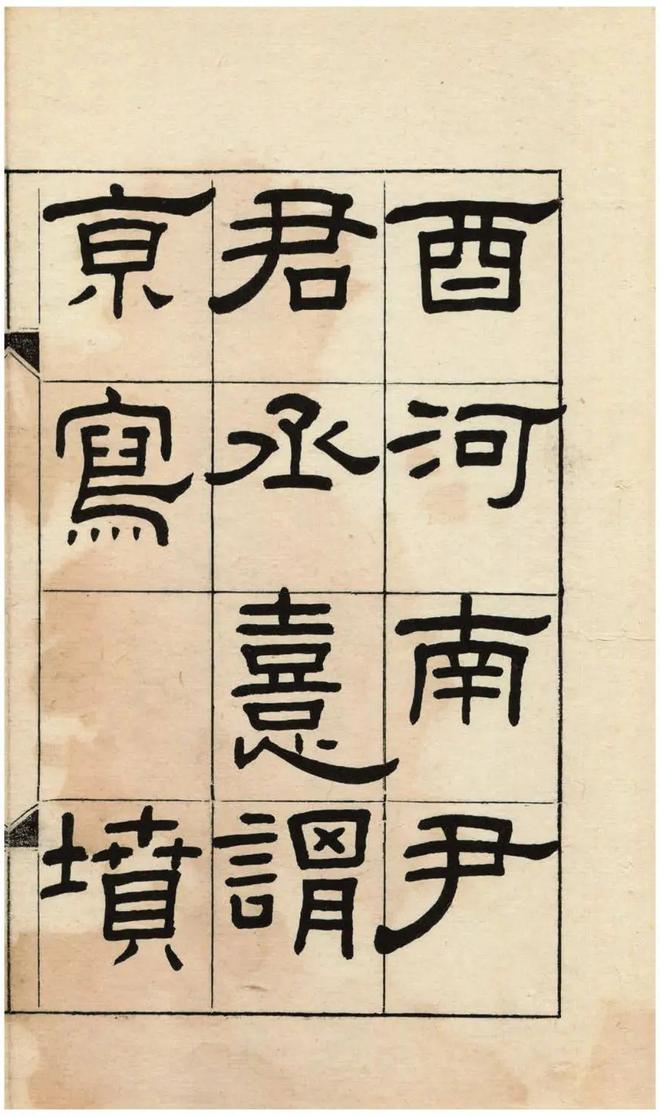 酉河南尹
君丞憙謂
亰寫墳